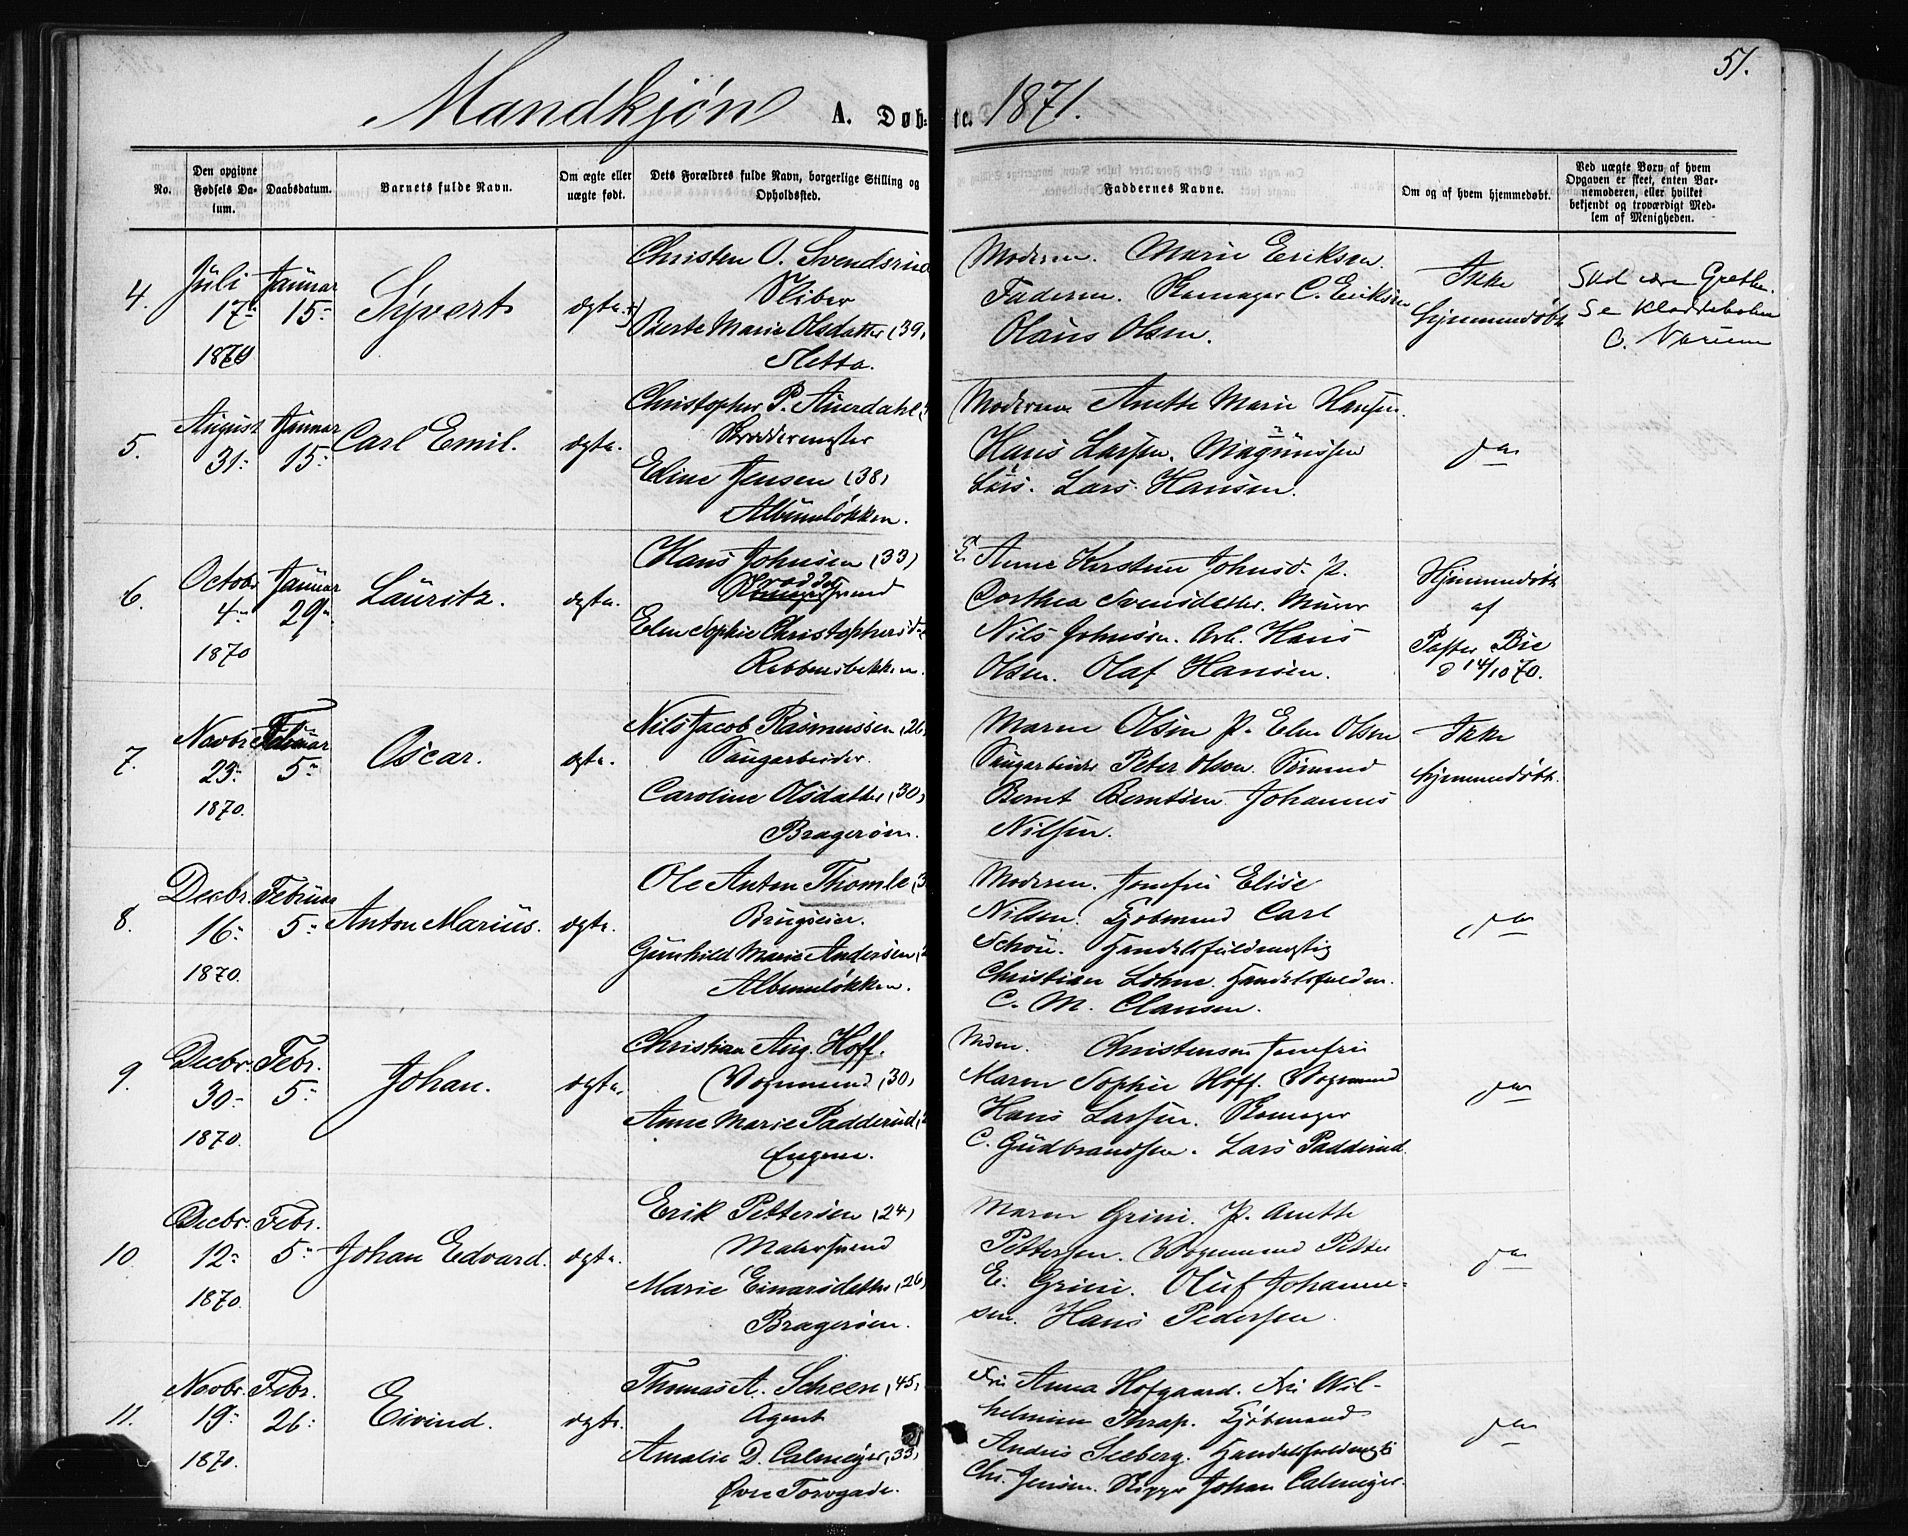 51.
Mandkjøn A. Døb- te. 1871.
No.
Den opgivne Fødsels Da- tum.
Daabsdatum.
Barnets fulde Navn.
Om ægte eller uægte født.
Dets Forældres fulde Navn, borgerlige Stilling og Opholdssted.
Faddernes Navne.
Om og af hvem hjemmedøbt.
Ved uægte Børn af hvem Opgaven er skeet, enten Bar- nemoderen, eller hvilket bekjendt og troværdigt Med- lem af Menigheden.
4.
Juli 17- 1870
Januar 15-
Syvert
ægte
Christen O. Svendsrud
Berte Marie Olsdatter (39)
Sletta.
Moderen. Marie Eriksen.
Faderen. C. Eriksen
Olaus Olsen.
Ikke
hjemmedøbt
Se Kladdeboken
5.
August 31-
Januar 15-
Carl Emil.
ægte.
Christopher P. Auerdahl
Eline Jensen (38)
Albumløkken.
Moderen Anette Marie Hansen.
Hans Larsen. Magnus
Lars Hansen.
do
6.
Octobr 4- 1870
Januar 29-
Lauritz.
ægte.
Hans Johnsen (33)
Elen Sophie Christophersd.
Robbensbekken.
Anne Kirstine Johnsd. P.
Dorthea Svensdatter. Murer
Nils Johnsen. Arb. Hans
Olsen. Olaf Hansen.
Hjemmedøbt
af
Pastor Bie
d 14/10 70.
7.
Novbr 23- 1870.
Februar 5-
Oscar.
ægte.
Nils Jacob Rasmussen (26)
Saugarbeider.
Caroline Olsdatter (30)
Bragerøen.
Maren Olsen P. Elen Olsen
Saugarbeider Peter Olsen. Sømand
Bernt Berntsen Johannes
Nilsen.
Ikke
hjemmedøbt.
8.
Decbr. 16- 1870.
Februar 5-
Anton Marius.
ægte.
Ole Anton Thomle
Brugseier.
Gunhild Marie Andersen
Albumløkken.
Moderen. Jomfru Elise
Nilsen. Kjøbmand Carl
Schou. Handelsfuldmægtig
Christian Løhne. Handelsfuldm.
C. M. Clausen.
do
9.
Decbr. 30- 1870.
Febr. 5-
Johan.
ægte.
Christian Aug. Hoff.
Vognmand (30)
Anne Marie Padderud
Engene.
Christensen Jomfru
Maren Sophie Hoff. Vognmand
Hans Larsen.
C. Gudbrandsen. Lars Padderud.
do
10.
Decbr. 12- 1870.
Febr. 5-
Johan Edvard.
ægte.
Erik Pettersen (24)
Malersvend
Marie Einarsdatter (26)
Bragerøen.
Maren Grini. P. Anette
Pettersen. Vognmand Petter
E. Grini. Oluf Johanne-
sen. Hans Pedersen.
do
11.
Novbr. 19- 1870.
Febr. 26-
Eivind.
ægte.
Thomas A. Scheen (45)
Agent
Amalie D. Calmeyer (33)
Øvre Torvgade.
Fru Anna Hofgaard. Fru Wil-
helmine Thrap. Kjøbmand
Andreas Seeberg. Handelsfuldmægtig
Chr. Jensen. Skipper Johan Calmeyer.
do